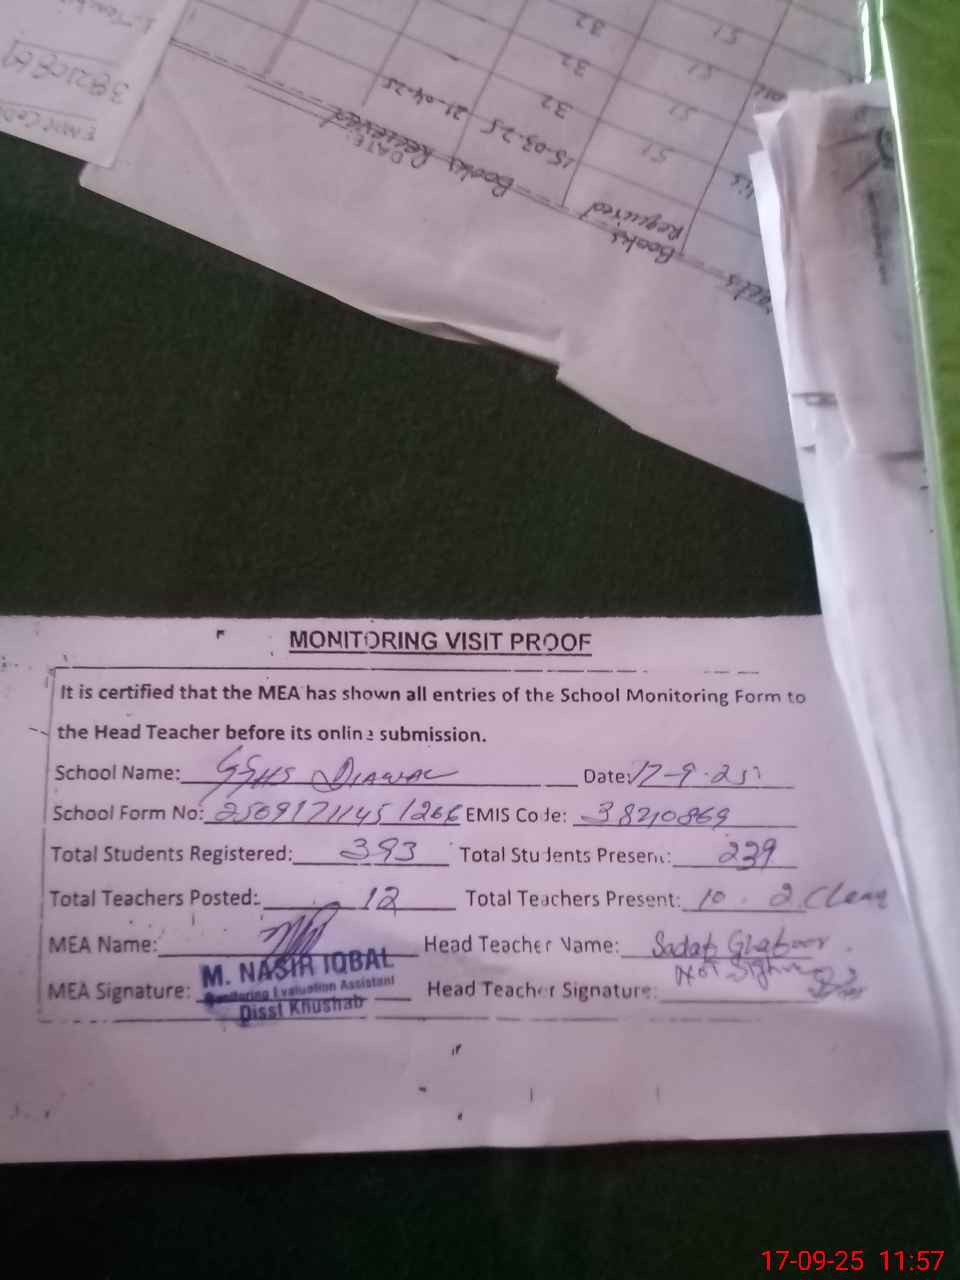 EMIS Code
DATE
Books Received
21-04-25
15-03-25
Books
Required
32
32
32
51
51
51
51
MONITORING VISIT PROOF
It is certified that the MEA has shown all entries of the School Monitoring Form to
the Head Teacher before its online submission.
School Name: GGHS Date: 17-9-25
School Form No: EMIS Code: 38210869
Total Students Registered: 393 Total Students Present: 239
Total Teachers Posted: 12 Total Teachers Present: 10 . 2
MEA Name: Head Teacher Name: Sadaf Ghafoor
M. NASIR IQBAL
Monitoring Evaluation Assistant
Disst Khushab
Not Sign
MEA Signature: Head Teacher Signature:
17-09-25 11:57